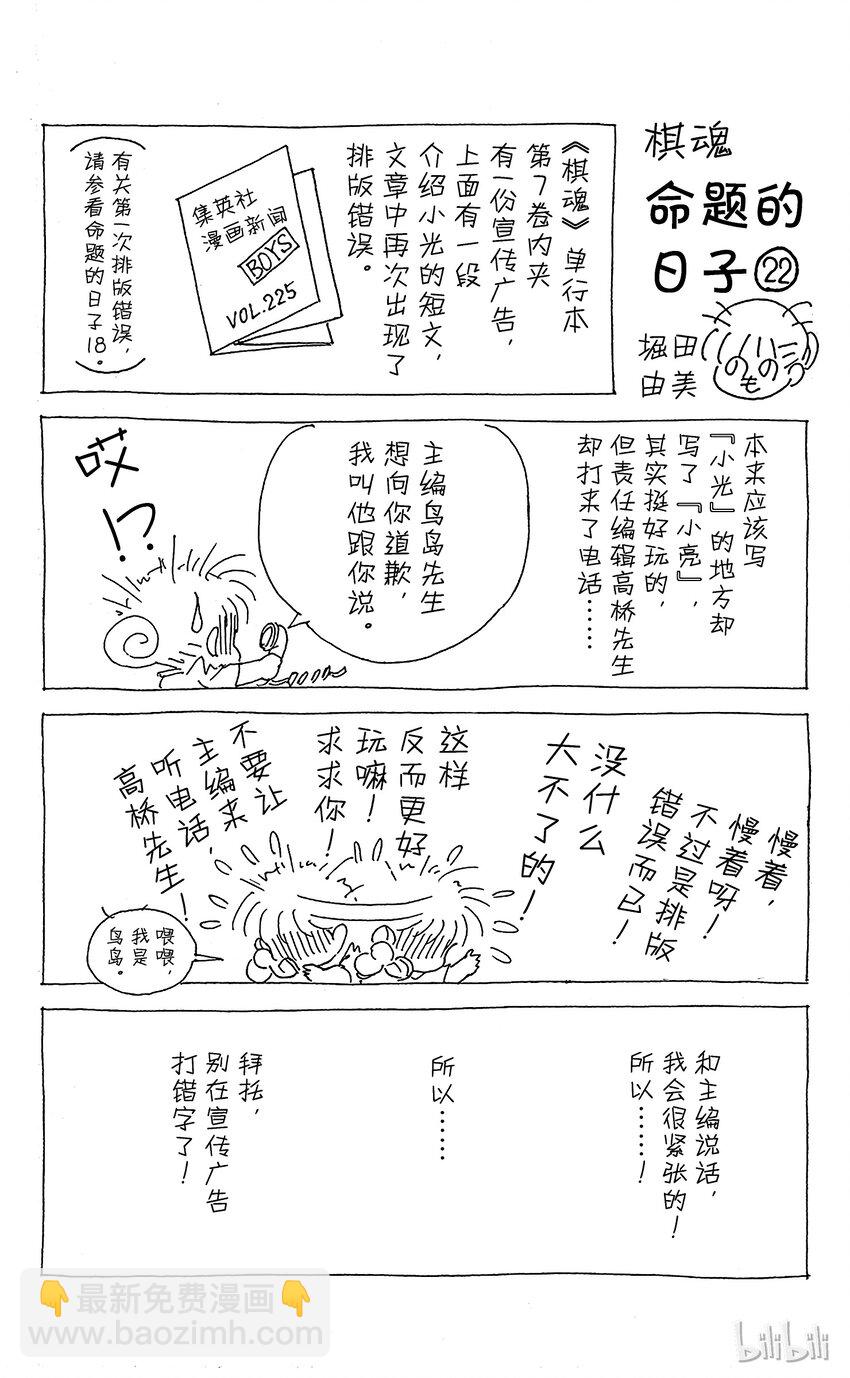 棋魂
命题的
日子㉒
堀田
由美
《棋魂》单行本
第7卷内夹
有一份宣传广告，
上面有一段
介绍小光的短文，
文章中再次出现了
排版错误。
集英社
漫画新闻
BOYS
VOL.225
（有关第一次排版错误，
请参看命题的日子18。）
本来应该写
『小光』的地方却
写了『小亮』，
其实挺好玩的，
但责任编辑高桥先生
却打来了电话……
主编鸟岛先生
想向你道歉，
我叫他跟你说。
哎!?
慢着，
慢着呀！
不过是排版
错误而已！
没什么
大不了的！
这样
反而更好
玩嘛！
求求你！
不要让
主编来
听电话，
高桥先生！
喂喂，
我是
鸟岛。
和主编说话，
我会很紧张的！
所以……！
所以……
拜托，
别在宣传广告
打错字了！
最新免费漫画
www.baozimh.com
bilibili